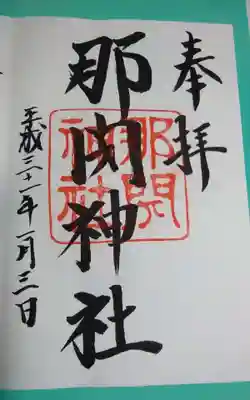 奉拝
那閉神社
那閉神社
平成三十一年一月三日